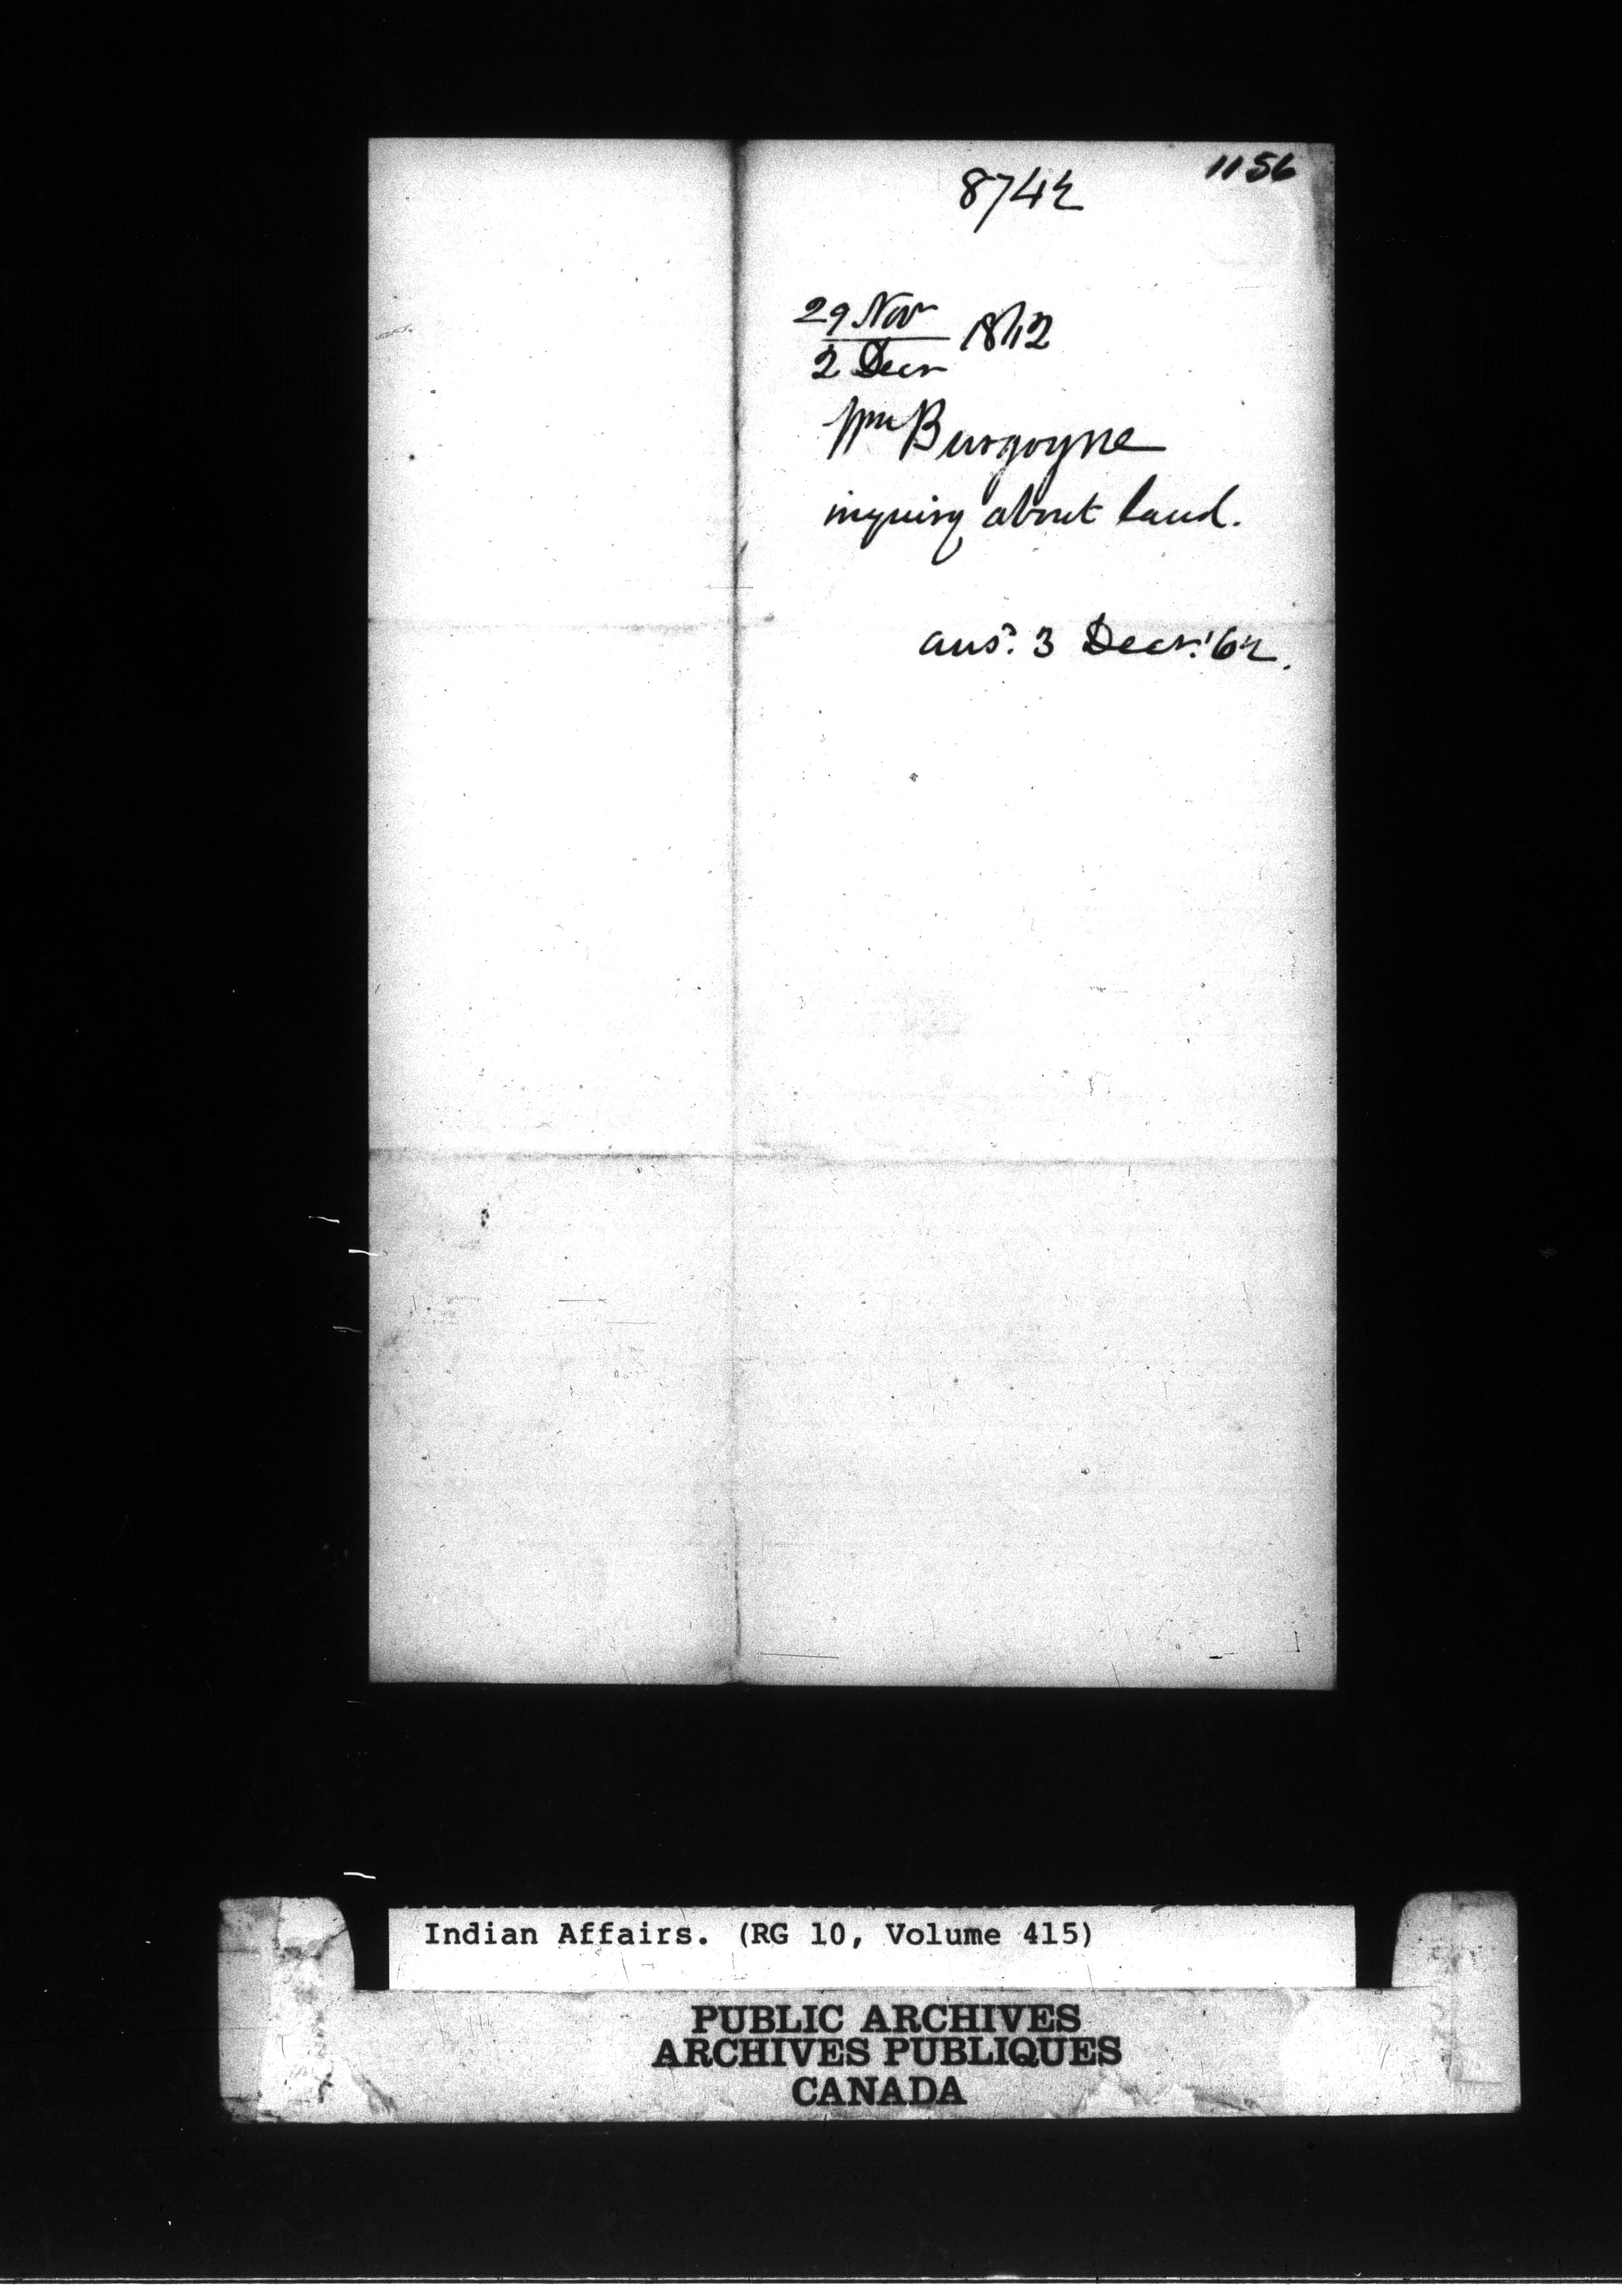 1156
8742
29 Nov
2 Decr 1862
Wm Burgoyne
inquiry about land.
ansd. 3 Decr. '62.
Indian Affairs. (RG 10, Volume 415)
PUBLIC ARCHIVES
ARCHIVES PUBLIQUES
CANADA